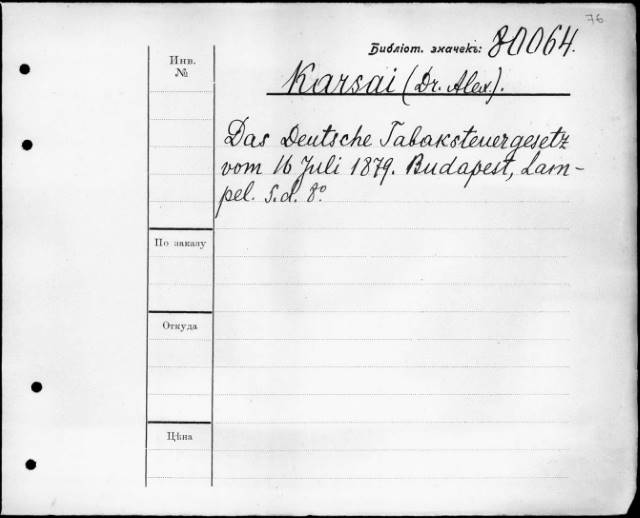 76
Библіот. значекъ: 80064.
Инв.
№
Karsai (Dr. Alex.).
Das Deutsche Tabaksteuergesetz
vom 16 Juli 1879. Budapest, Lam-
pel. S.d. 8º.
По заказу
Откуда
Цѣна